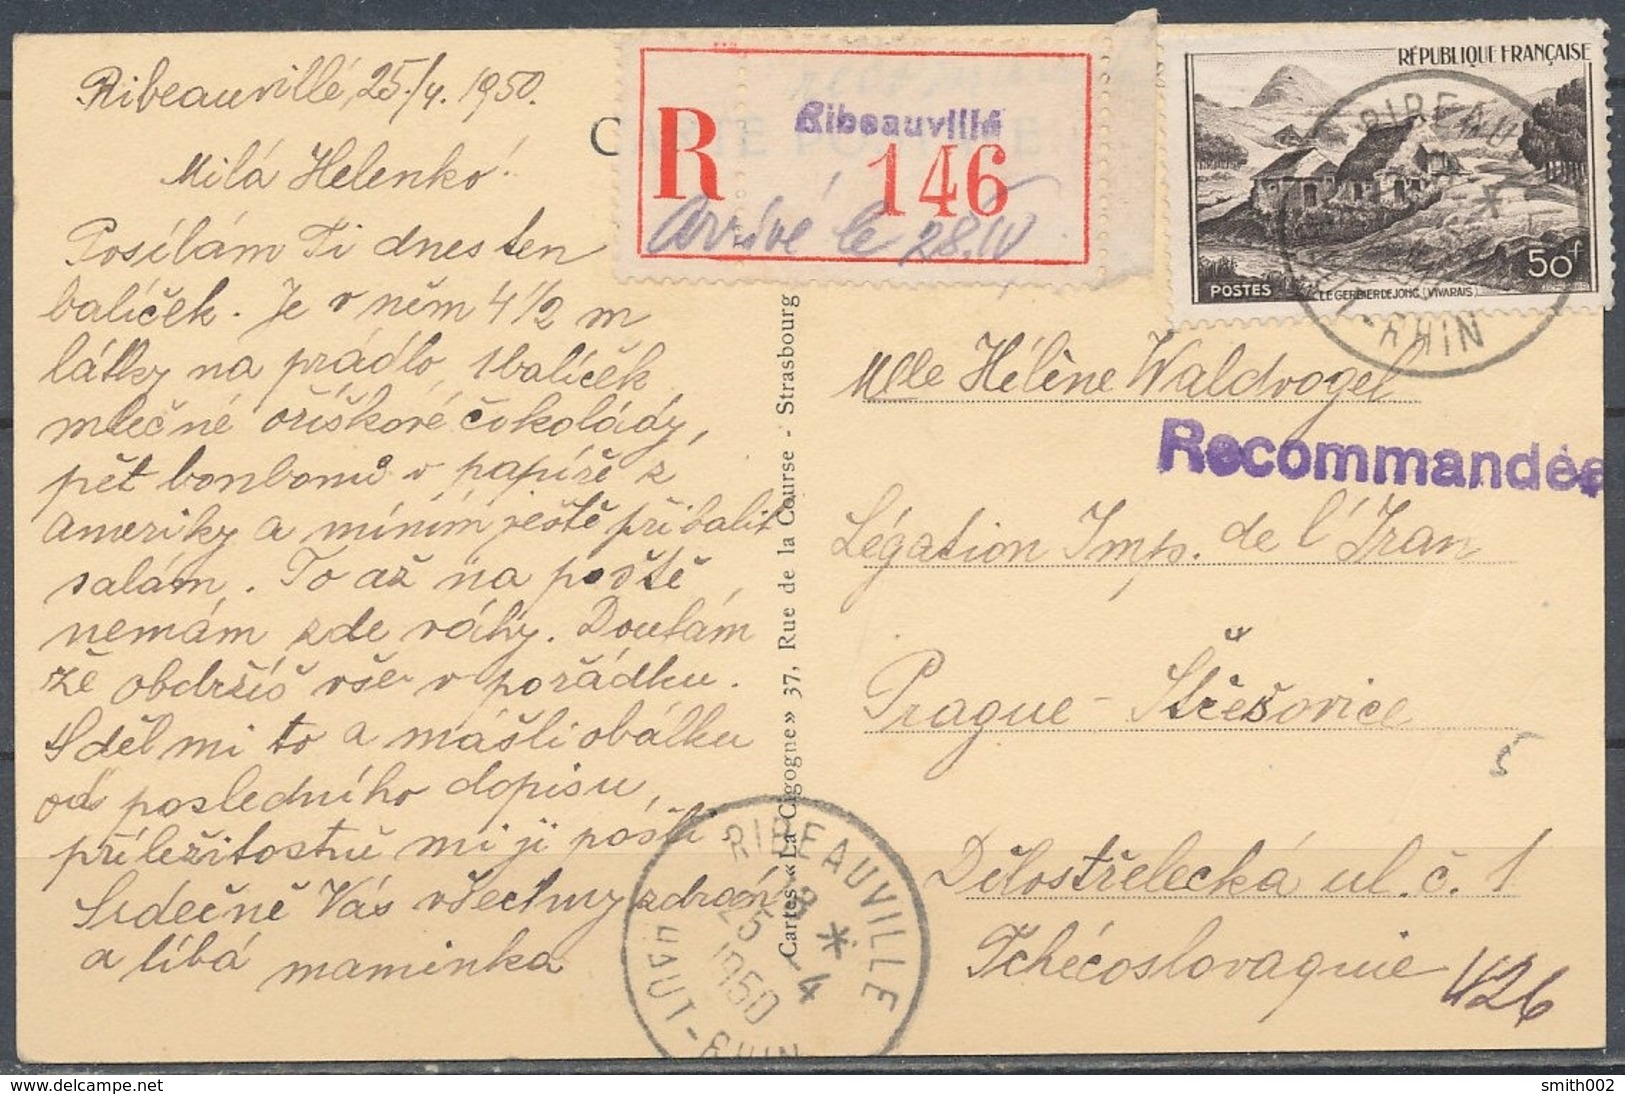 Ribeauvillé, 25./4. 1950.
Milá Helenko!
Posílám Ti dnes ten
balíček. Je v něm 4 1/2 m
látky na prádlo, 1 balíček
mlečné oříškové čokolády,
pět bonbonů v papíře z
Ameriky a míním ještě přibalit
salám. To až na poště
nemám zde váhy. Doufám
že obdržíš vše v pořádku.
Sděl mi to a mášli obálku
od posledního dopisu,
příležitostně mi ji pošli
Srdečně Vás všechny zdraví
a líbá maminka
R
Ribeauvillé
146
Arrivé le 28.IV
RÉPUBLIQUE FRANÇAISE
50f
POSTES
LE GERBIER DE JONC (VIVARAIS)
RIBEAUVILLÉ
Mlle Hélène Waldvogel
Recommandée
Légation Imp. de l'Iran
Prague - Střešovice
5
Dělostřelecká ul. č. 1
Tchécoslovaquie
426
Cartes «La Cigogne» 37, Rue de la Course - Strasbourg
RIBEAUVILLE
18 *
25 -4
1950
HAUT-RHIN
smith002